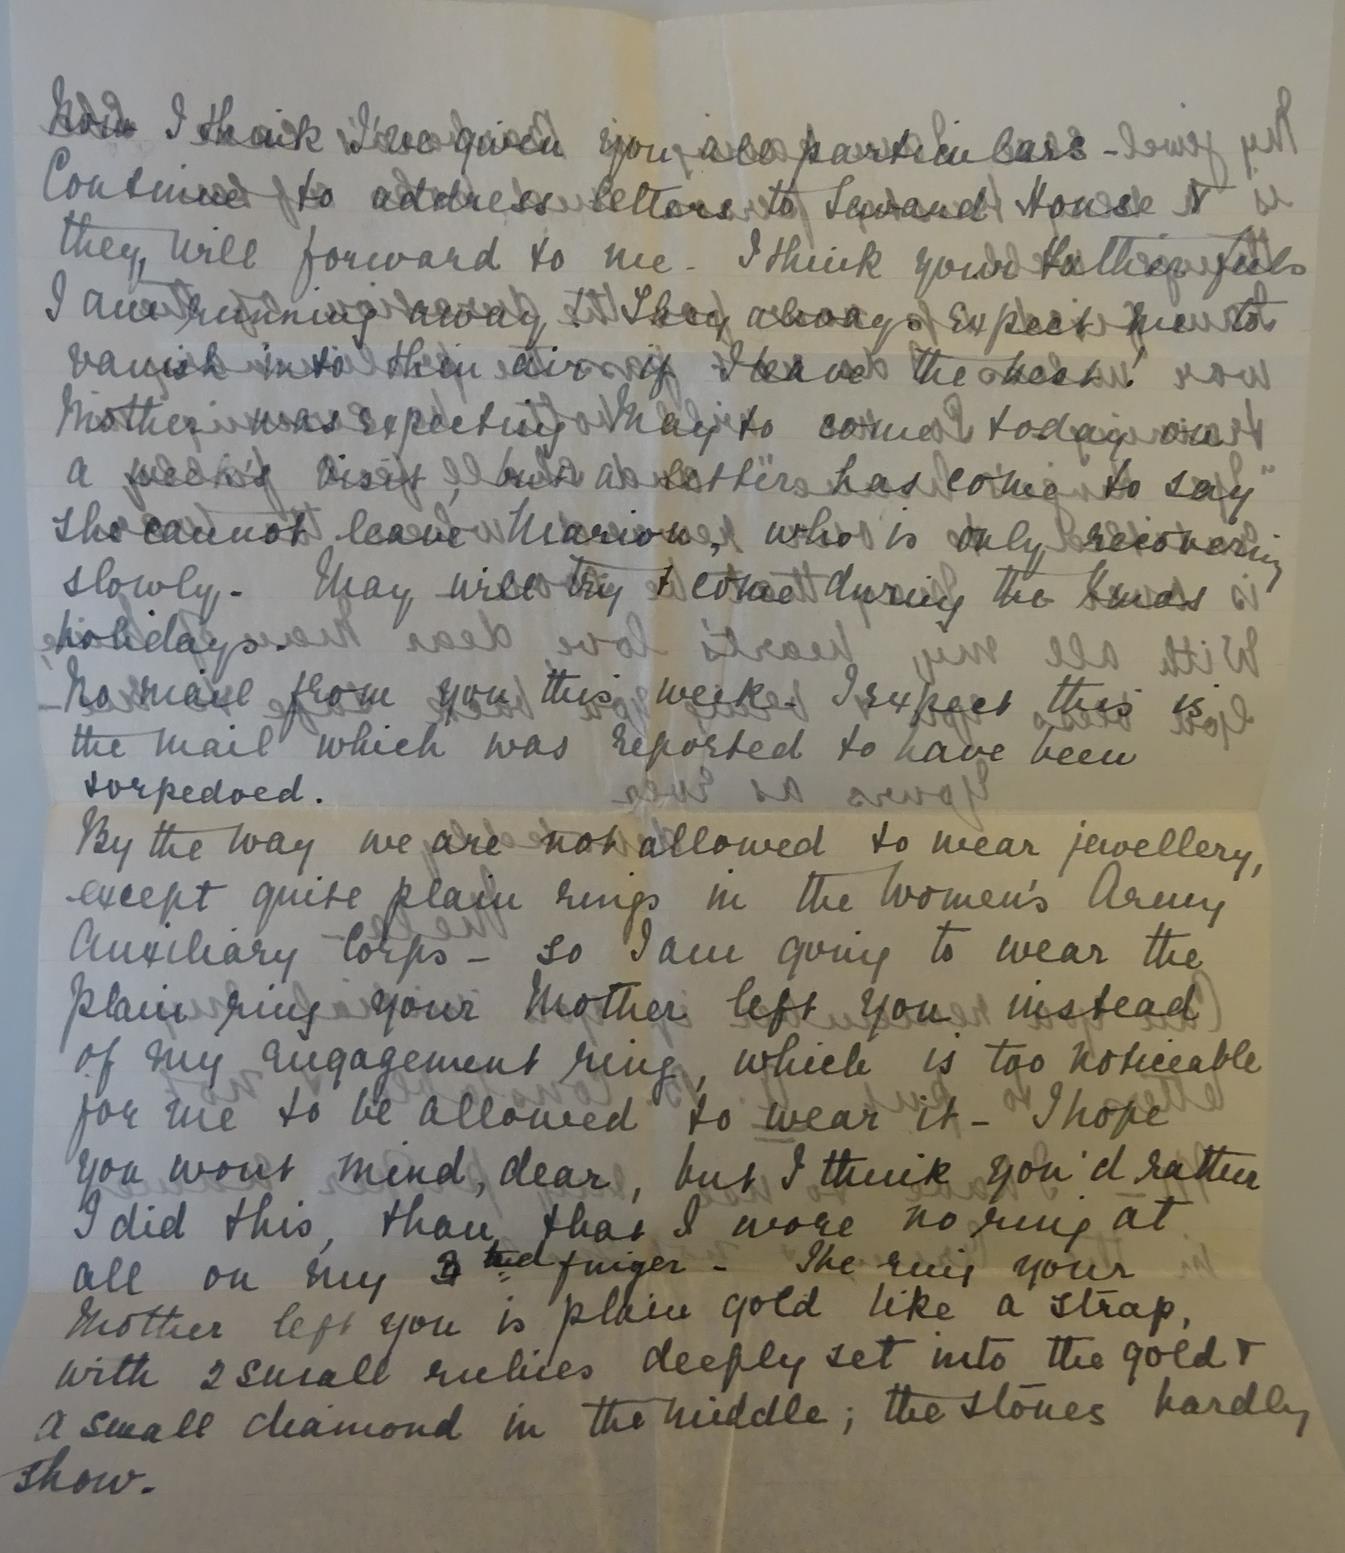 Now I think I've given you all particulars -
Continue to address letters to Seward House &
they will forward to me. I think your father feels
I am running away! They always expect me to
vanish into thin air if I leave the nest!
Mother was expecting May to come today on
a week's visit, but a letter has come to say
she cannot leave Marion, who is only recovering
slowly. May will try & come during the Xmas
holidays.
No mail from you this week. I expect this is
the mail which was reported to have been
torpedoed.
By the way we are not allowed to wear jewellery,
except quite plain rings in the Women's Army
Auxiliary Corps - so I am going to wear the
plain ring your Mother left you instead
of my engagement ring, which is too noticeable
for me to be allowed to wear it - I hope
you wont mind, dear, but I think you'd rather
I did this, than that I wore no ring at
all on my 3rd finger - The ring your
Mother left you is plain gold like a strap,
with 2 small rubies deeply set into the gold &
a small diamond in the middle; the stones hardly
show.